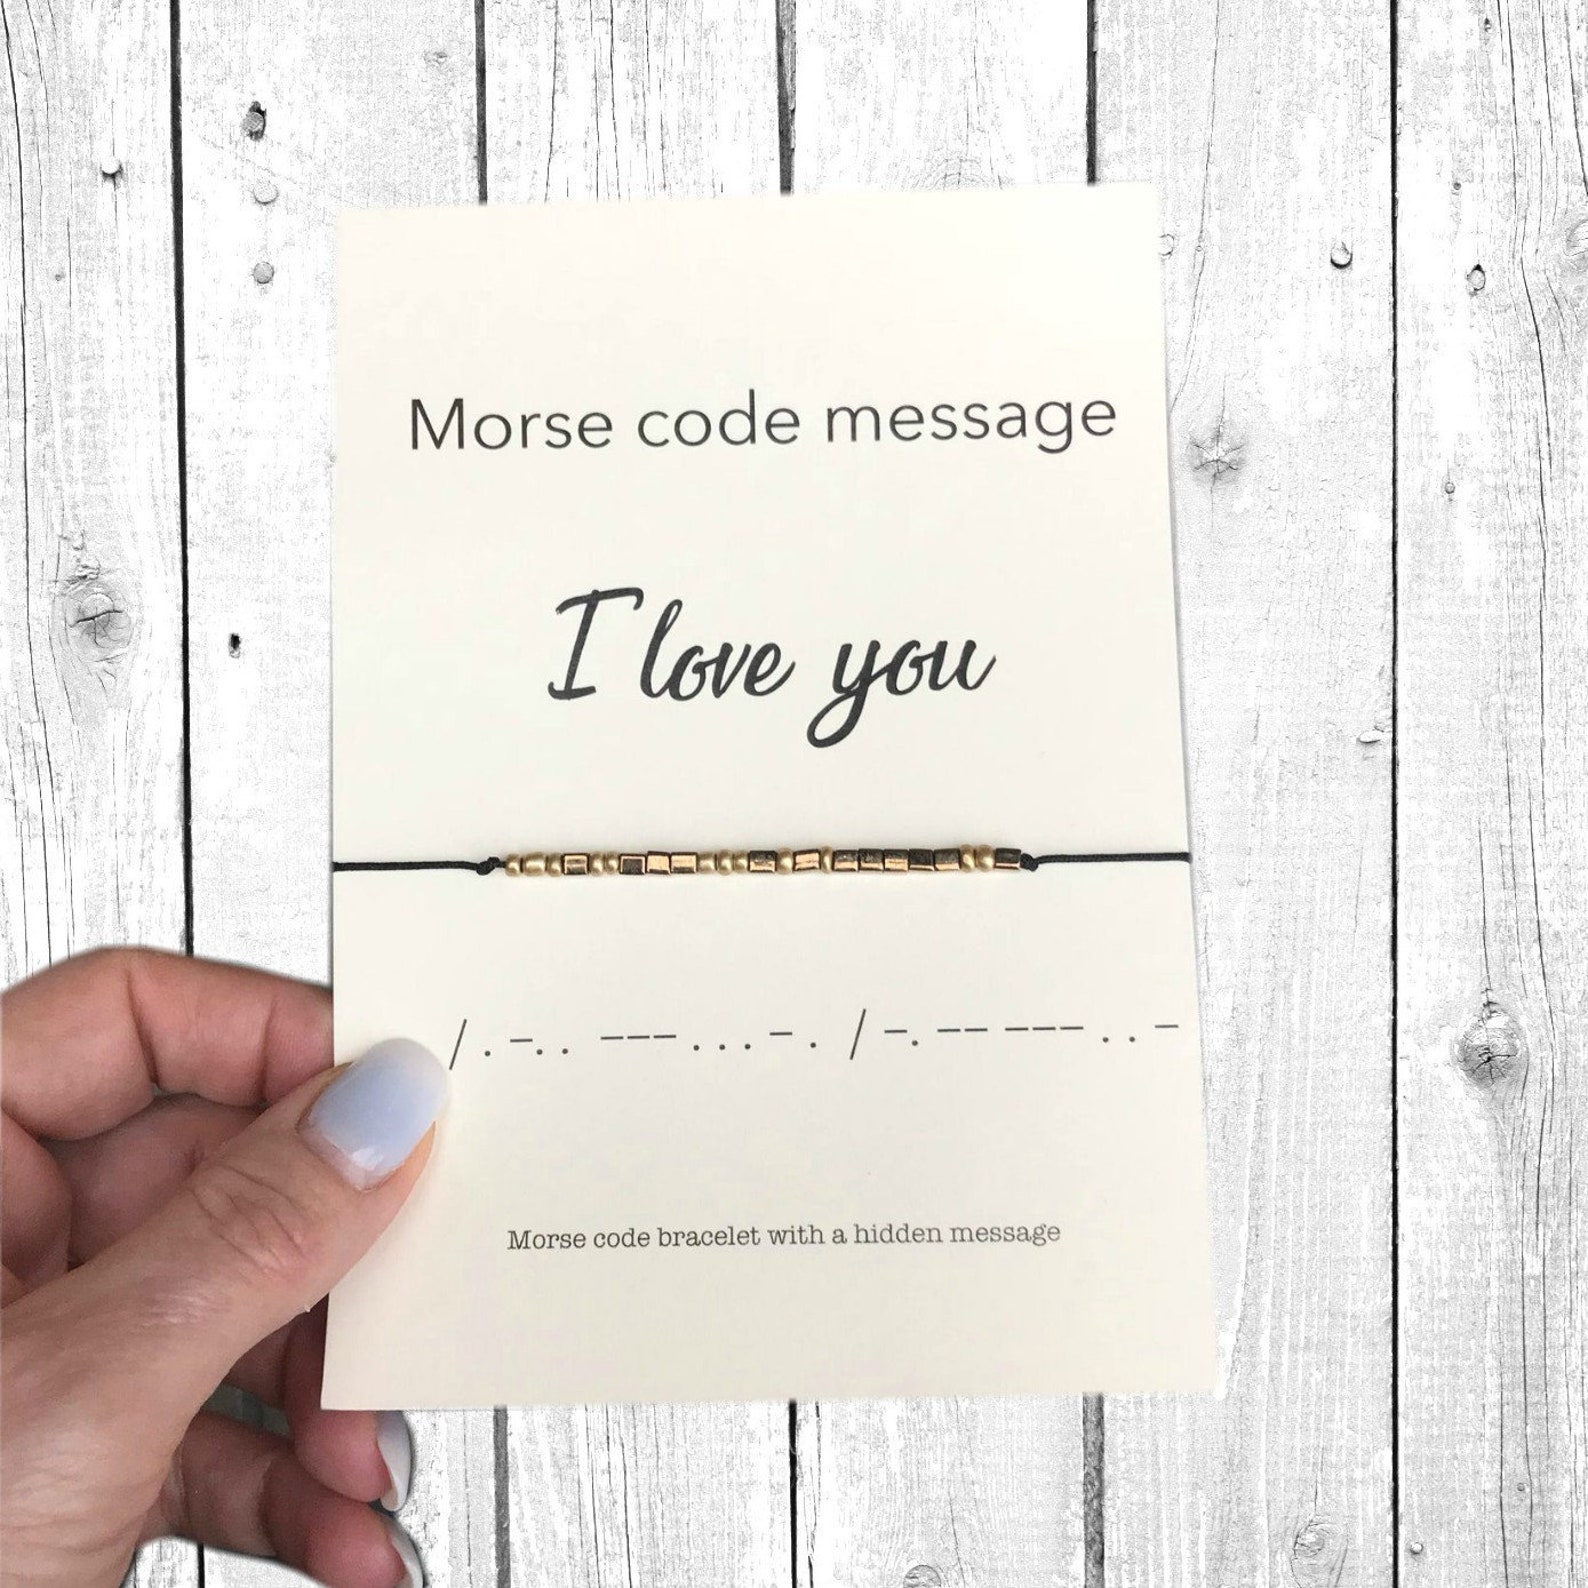 Morse code message
I love you
/ . -. . --- . . . - . / -. -- --- . . -
Morse code bracelet with a hidden message